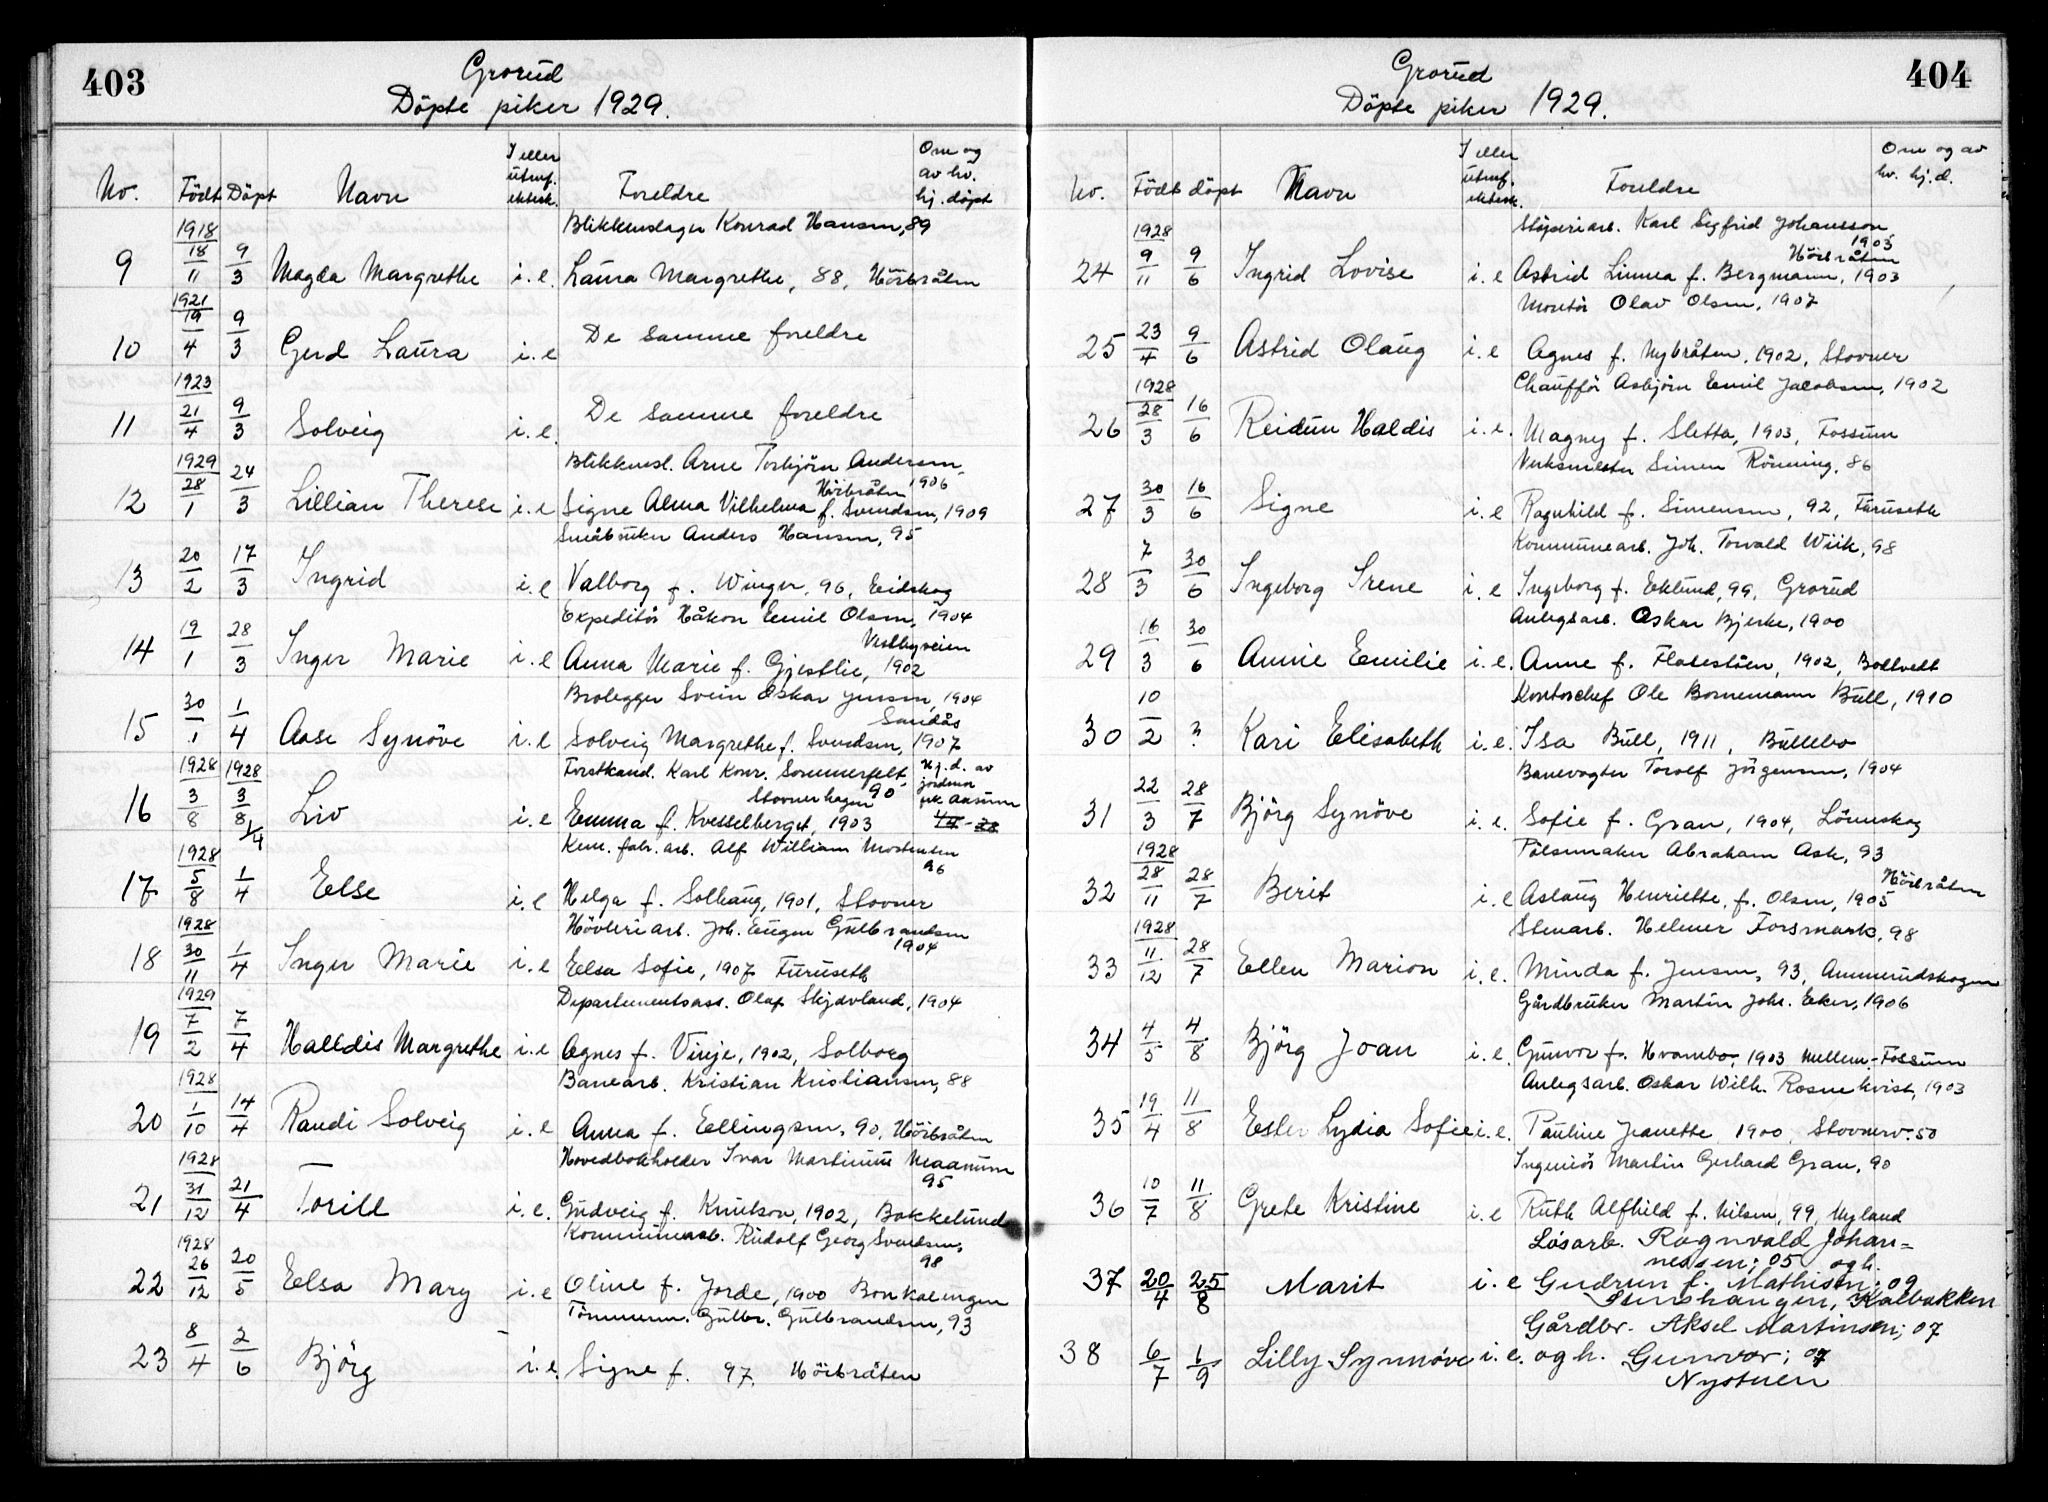 403
Grorud
Döpte piker 1929.
No. Födt Döpt Navn I eller utenf. ektesk. Foreldre Om og av hv. hj. döpt
1918 Blikkenslager Konrad Hansen, 89
9 18/11 9/3 Magda Margrethe i.e. Laura Margrethe, 88, Höibråten
1921
10 19/4 9/3 Gerd Laura i.e De samme foreldre
1923
11 21/4 9/3 Solveig i.e. De samme foreldre
1929 Blikkensl. Arne Torbjörn Andersen, 1906
Höibråten
12 28/1 24/3 Lillian Therese i.e Signe Alma Vilhelma f. Svendsen, 1909
Småbruker Anders Hansen, 95
13 20/2 17/3 Ingrid i.e Valborg f. Winger, 96, Eidskog
Expeditör Håkon Emil Olsen, 1904
Vestbyveien
14 19/1 28/3 Inger Marie i.e Anna Marie f. Gjestlie, 1902
Brolegger Svein Oskar Jensen, 1904
Sandås
15 30/1 1/4 Aase Synöve i.e Solveig Margrethe f. Svendsen, 1907
1928 1928 Forstkand. Karl Konr. Sommerfelt, 90 Hj.d. av jordmor frk Aasum
Stovnerhagen
16 3/8 3/8 1/4 Liv i.e Emma f. Kvesselberget, 1903
1928 Kem. fabr. arb. Alf William Mortensen 96
17 5/8 1/4 Else i.e Helga f. Solhaug, 1901, Stovner
1928 Hövleriarb. Joh. Eugen Gulbrandsen 1904
18 30/11 1/4 Inger Marie i.e Elsa Sofie, 1907 Furuseth
1929 Departementsass. Olaf Skjævland, 1904
19 7/2 7/4 Halldis Margrethe i.e Agnes f. Vinje, 1902, Solborg
1928 Banearb. Kristian Kristiansen, 88
20 1/10 14/4 Randi Solveig i.e Anna f. Ellingsen, 90, Höibråten
1928 Hovedbokholder Ivar Martinius Maanum 95
21 31/12 21/4 Torill i.e. Gudveig f. Knutson, 1902, Bakkelund
1928 Kommunearb. Rudolf Georg Svendsen, 98
22 26/12 20/5 Elsa Mary i.e Oline f. Jorde, 1900 Bonkalengen
Tömmerm. Gulbr. Gulbrandsen, 93
23 8/4 2/6 Björg i.e. Signe f. 97. Höibråten
404
Grorud
Döpte piker 1929.
No. Födt döpt Navn I eller utenf. ektesk. Foreldre Om og av hv. hj. d.
1928 Stöperiarb. Karl Sigfrid Johansson 1903
Höibråten
24 9/11 9/6 Ingrid Lovise i.e Astrid Linnea f. Bergmann, 1903
Montör Olav Olsen, 1907
25 23/4 9/6 Astrid Olaug i.e Agnes f. Nybråten, 1902, Stovner
1928 Chafför Asbjörn Emil Jacobsen, 1902
26 28/3 16/6 Reidun Haldis i.e. Magny f. Sletta, 1903, Fossum
Verksmester Simen Rönning, 86
27 30/3 16/6 Signe i.e Ragnhild f. Simensen, 92, Furuseth
Kommunearb. Joh. Torvald Wiik, 98
28 7/3 30/6 Ingeborg Irene i.e Ingeborg f. Eklund, 99, Grorud
Anlegsarb. Oskar Bjerke, 1900
29 16/3 30/6 Annie Emilie i.e. Anne f. Flatestöen, 1902, Boltvedt
Kontorchef Ole Bornemann Bull, 1910
30 10/2 ? Kari Elisabeth i.e. Isa Bull, 1911, Bullebo
Banevogter Torolf Jörgensen, 1904
31 22/3 28/7 Björg Synöve i.e. Sofie f. Gran, 1904, Lörenskog
1928 Pölsemaker Abraham Ask, 93
Höibråten
32 28/11 28/7 Berit i.e Aslaug Henriette, f. Olsen, 1905
1928 Stenarb. Helmer Forsmark, 98
33 11/12 28/7 Ellen Marion i.e. Minda f. Jensen, 93, Ammerudskogen
Gårdbruker Martin Johs. Eker, 1906
34 4/5 4/8 Björg Joan i.e. Gunvor f. Hvambo, 1903 Mellem-Fossum
Anlegsarb. Oskar Wilh. Rosenkvist, 1903
35 19/4 11/8 Ester Lydia Sofie i.e. Pauline Jeanette 1900, Stovnerv. 50
Ingeniör Martin Gerhard Gran, 90
36 10/7 11/8 Grete Kristine i.e Ruth Alfhild f. Nilsen, 99, Nyland
Lösarb. Ragnvald Johan=
nessen; 05 og h.
37 20/4 25/8 Marit i.e Gudrun f. Mathisen; 09
Stenshaugen, Kalbakken
Gårdbr. Aksel Martinsen; 07
38 6/7 1/9 Lilly Synnöve i.e. og h. Gunvor; 07
Nystuen